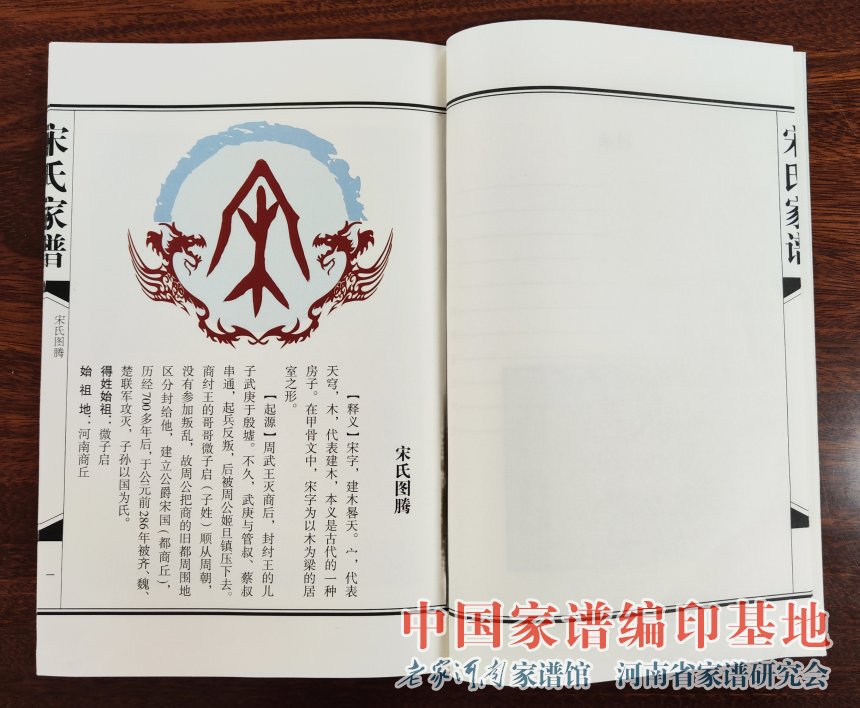 宋氏图腾
【释义】宋字，建木晷天。宀，代表
天穹，木，代表建木，本义是古代的一种
房子。在甲骨文中，宋字为以木为梁的居
室之形。
【起源】周武王灭商后，封纣王的儿
子武庚于殷墟。不久，武庚与管叔、蔡叔
串通，起兵反叛，后被周公姬旦镇压下去。
商纣王的哥哥微子启（子姓）顺从周朝，
没有参加叛乱，故周公把商的旧都周围地
区分封给他，建立公爵宋国（都商丘），
历经700多年后，于公元前286年被齐、魏、
楚联军攻灭，子孙以国为氏。
得姓始祖：微子启
始 祖 地：河南商丘
宋氏家谱
宋氏图腾
一
宋氏家谱
中国家谱编印基地
老家河南家谱馆 河南省家谱研究会